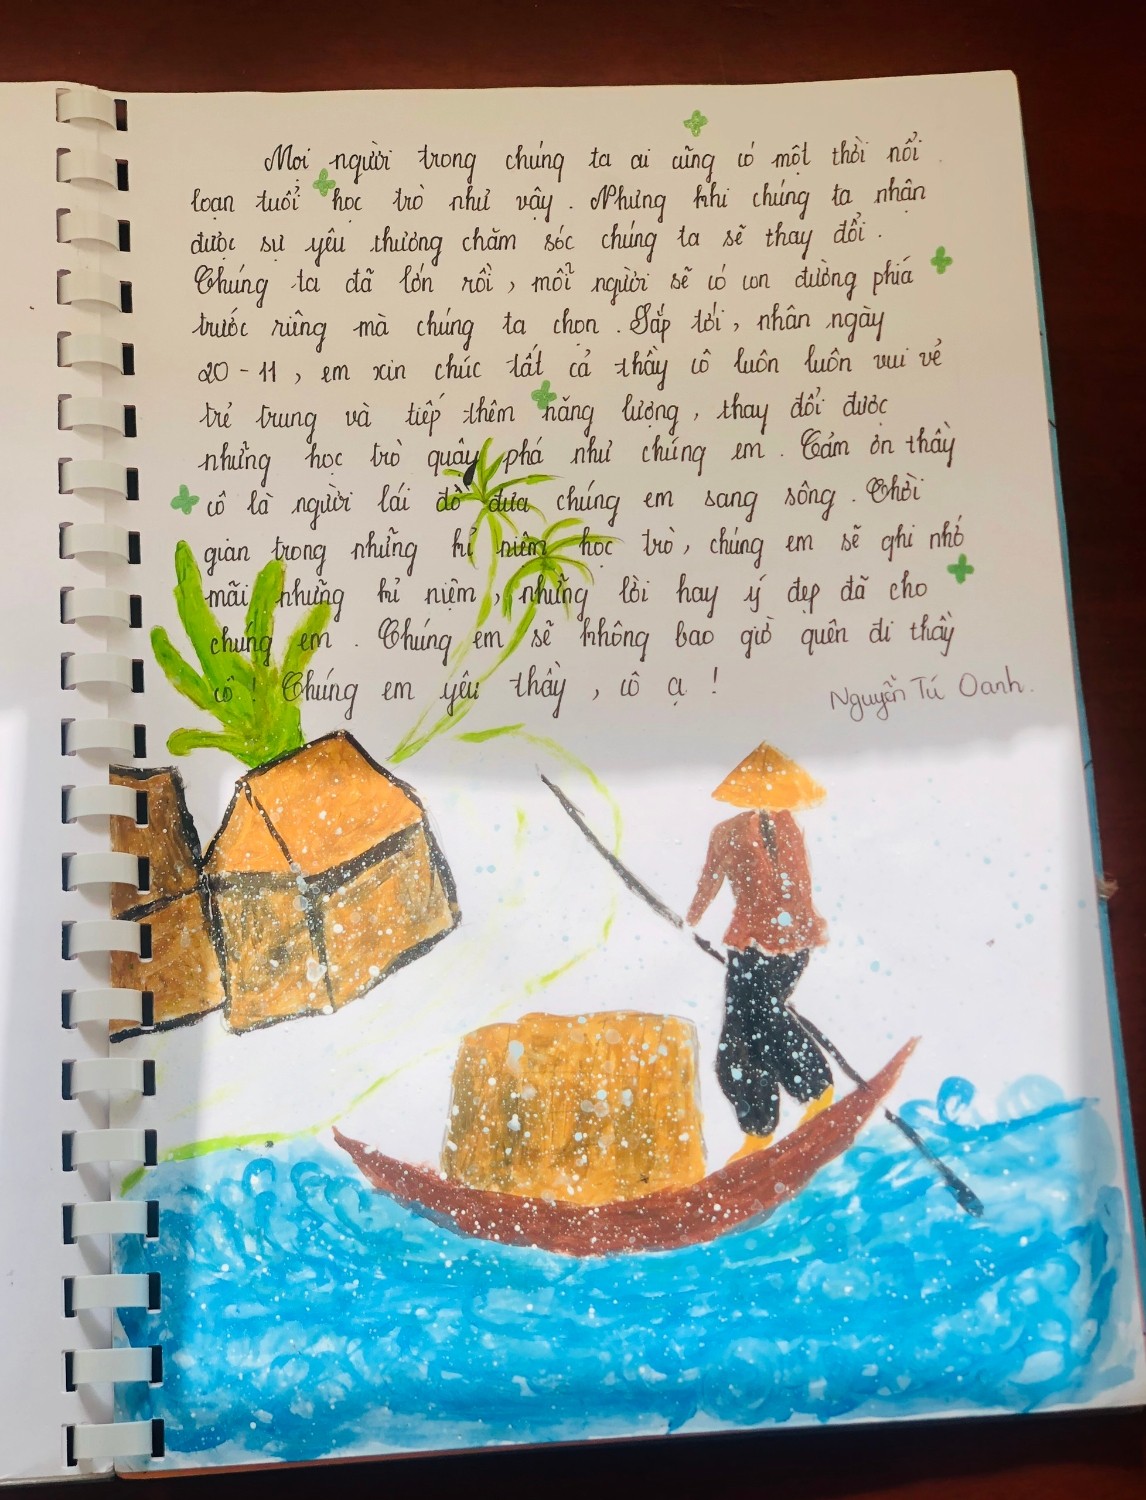 Mọi người trong chúng ta ai cũng có một thời nổi
loạn tuổi học trò như vậy. Nhưng khi chúng ta nhận
được sự yêu thương chăm sóc chúng ta sẽ thay đổi.
Chúng ta đã lớn rồi, mỗi người sẽ có con đường phiá
trước riêng mà chúng ta chọn. Sắp tới, nhân ngày
20-11, em xin chúc tất cả thầy cô luôn luôn vui vẻ
trẻ trung và tiếp thêm năng lượng, thay đổi được
những học trò quậy phá như chúng em. Cảm ơn thầy
cô là người lái đò đưa chúng em sang sông. Thời
gian trong những kỉ niệm học trò, chúng em sẽ ghi nhớ
mãi những kỉ niệm, những lời hay ý đẹp đã cho
chúng em. Chúng em sẽ không bao giờ quên đi thầy
cô! Chúng em yêu thầy, cô ạ!
Nguyễn Tú Oanh.